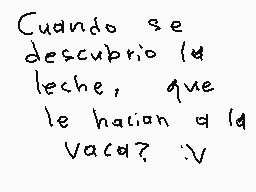 Cuando se
descubrio la
leche, que
le hacian a la
vaca? :V